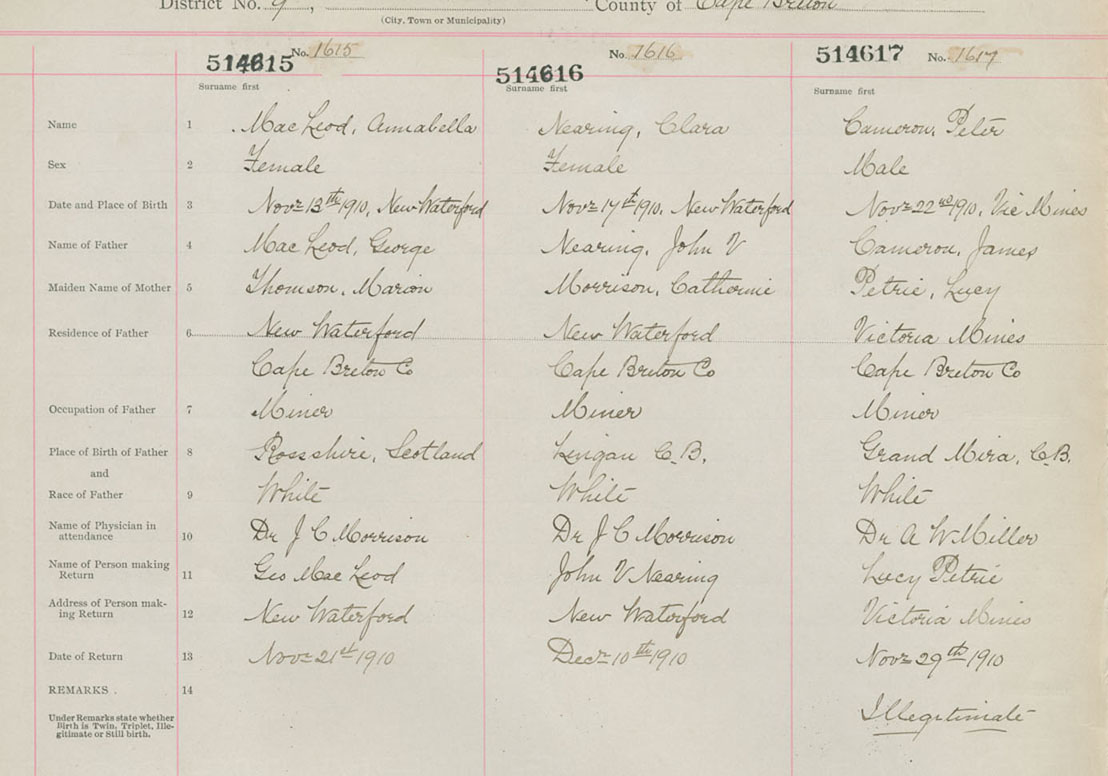 District No. 9, County of Cape Breton
(City, Town or Municipality)
514615 No. 1615 514616 No. 1616 514617 No. 1617
Surname first Surname first Surname first
Name 1 MacLeod, Annabella Nearing, Clara Cameron, Peter
Sex 2 Female Female Male
Date and Place of Birth 3 Novr 13th 1910, New Waterford Novr 17th 1910, New Waterford Novr 22nd 1910, Vic Mines
Name of Father 4 MacLeod, George Nearing, John V Cameron, James
Maiden Name of Mother 5 Thomson, Marion Morrison, Catherine Petrie, Lucy
Residence of Father 6 New Waterford New Waterford Victoria Mines
Cape Breton Co Cape Breton Co Cape Breton Co
Occupation of Father 7 Miner Miner Miner
Place of Birth of Father 8 Rossshire, Scotland Lingan C.B. Grand Mira, C.B.
and
Race of Father 9 White White White
Name of Physician in attendance 10 Dr J C Morrison Dr J C Morrison Dr A W Miller
Name of Person making Return 11 Geo MacLeod John V Nearing Lucy Petrie
Address of Person making Return 12 New Waterford New Waterford Victoria Mines
Date of Return 13 Novr 21st 1910 Decr 10th 1910 Novr 29th 1910
REMARKS . 14
Under Remarks state whether Birth is Twin, Triplet, Illegitimate or Still birth. Illegitimate